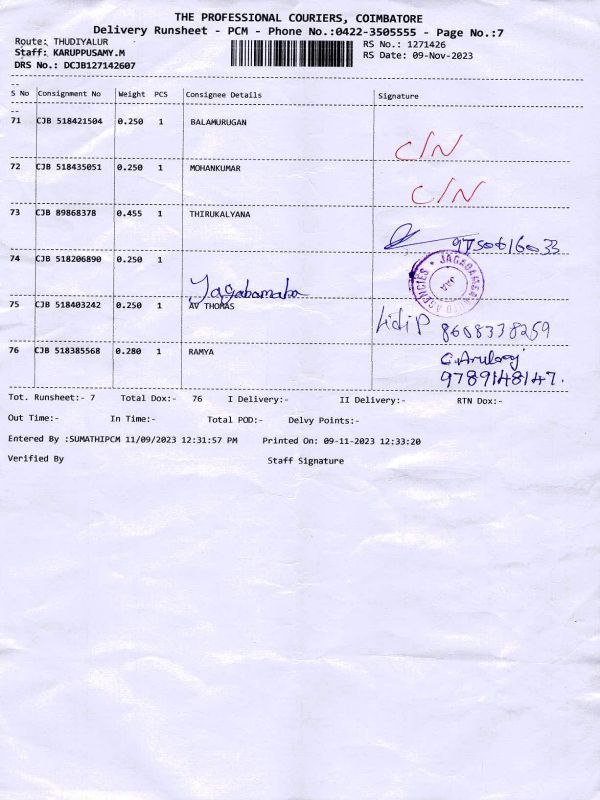 THE PROFESSIONAL COURIERS, COIMBATORE
Delivery Runsheet - PCM - Phone No.:0422-3505555 - Page No.:7
Route: THUDIYALUR
RS No.: 1271426
Staff: KARUPPUSAMY.M
RS Date: 09-Nov-2023
DRS No.: DCJB127142607
S No Consignment No Weight PCS Consignee Details Signature
71 CJB 518421504 0.250 1 BALAMURUGAN
C/N
72 CJB 518435051 0.250 1 MOHANKUMAR
C/N
73 CJB 89868378 0.455 1 THIRUKALYANA
9750616033
74 CJB 518206890 0.250 1
Jagabamaba
75 CJB 518403242 0.250 1 AV THOMAS
8608338259
76 CJB 518385568 0.280 1 RAMYA
G.Arulraj
9789148147.
Tot. Runsheet:- 7 Total Dox:- 76 I Delivery:- II Delivery:- RTN Dox:-
Out Time:- In Time:- Total POD:- Delvy Points:-
Entered By :SUMATHIPCM 11/09/2023 12:31:57 PM Printed On: 09-11-2023 12:33:20
Verified By Staff Signature